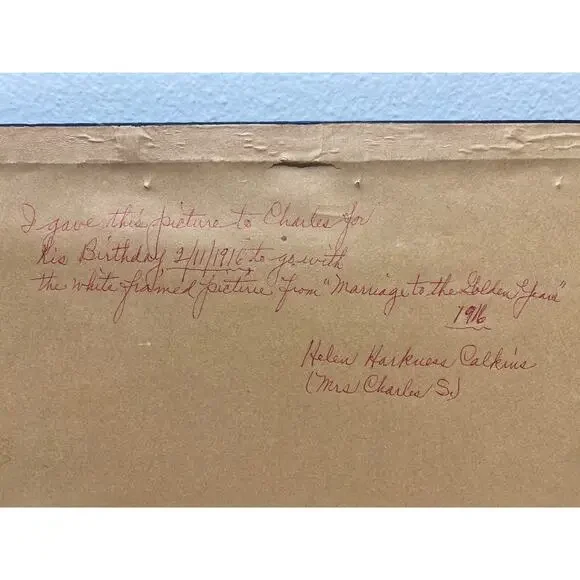 I gave this picture to Charles for
his Birthday 2/11/1916 to go with
the white framed picture from "Marriage to the Golden Years"
1916
Helen Harkness Calkins
(Mrs Charles S.)